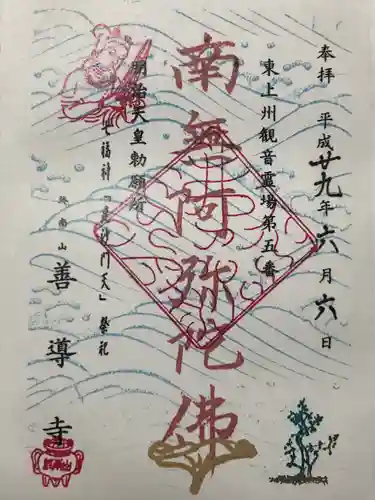 奉拝 平成廿九年六月六日
東上州観音霊場第五番
南無阿弥陀佛
明治天皇勅願所
七福神「毘沙門天」祭礼
終南山 善導寺